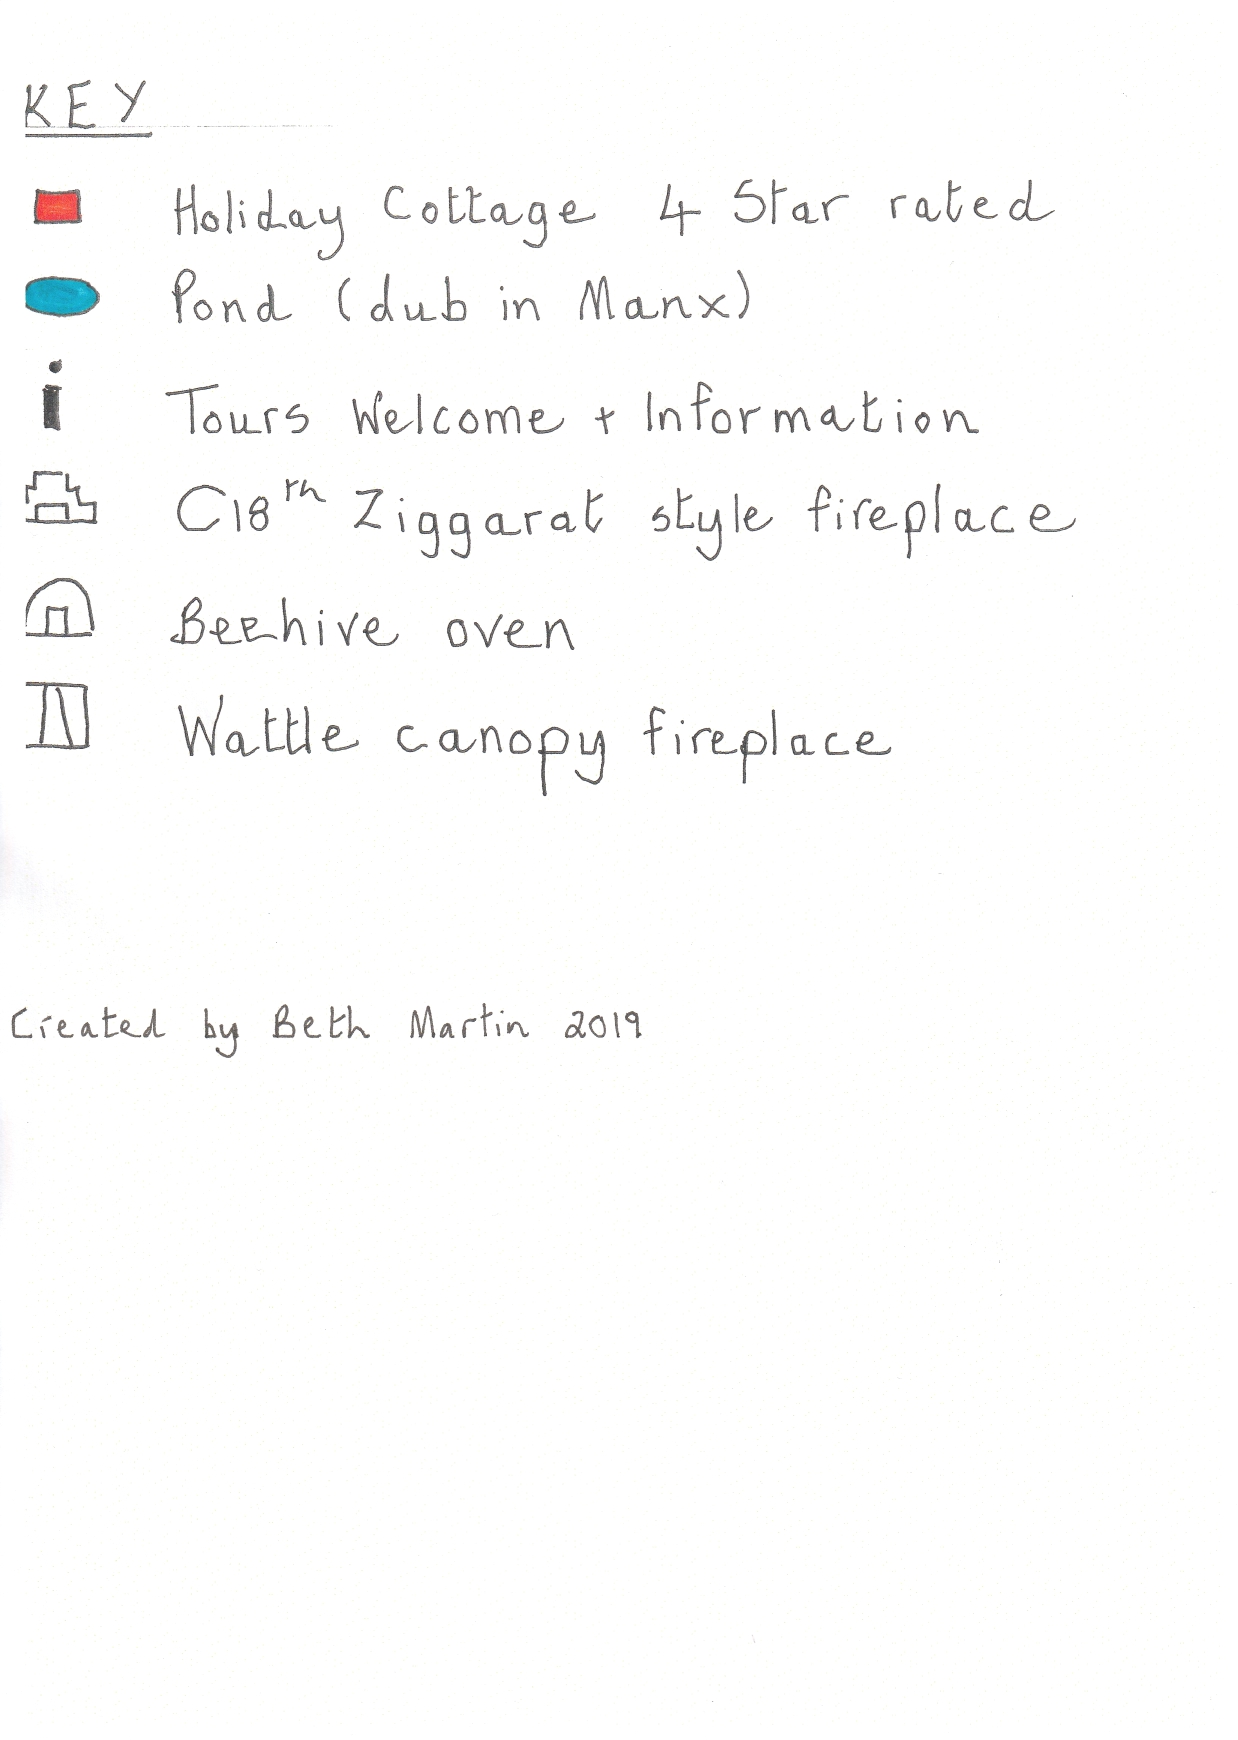 KEY
Holiday Cottage 4 Star rated
Pond (dub in Manx)
i
Tours Welcome + Information
C18th Ziggarat style fireplace
Beehive oven
Wattle canopy fireplace
Created by Beth Martin 2019